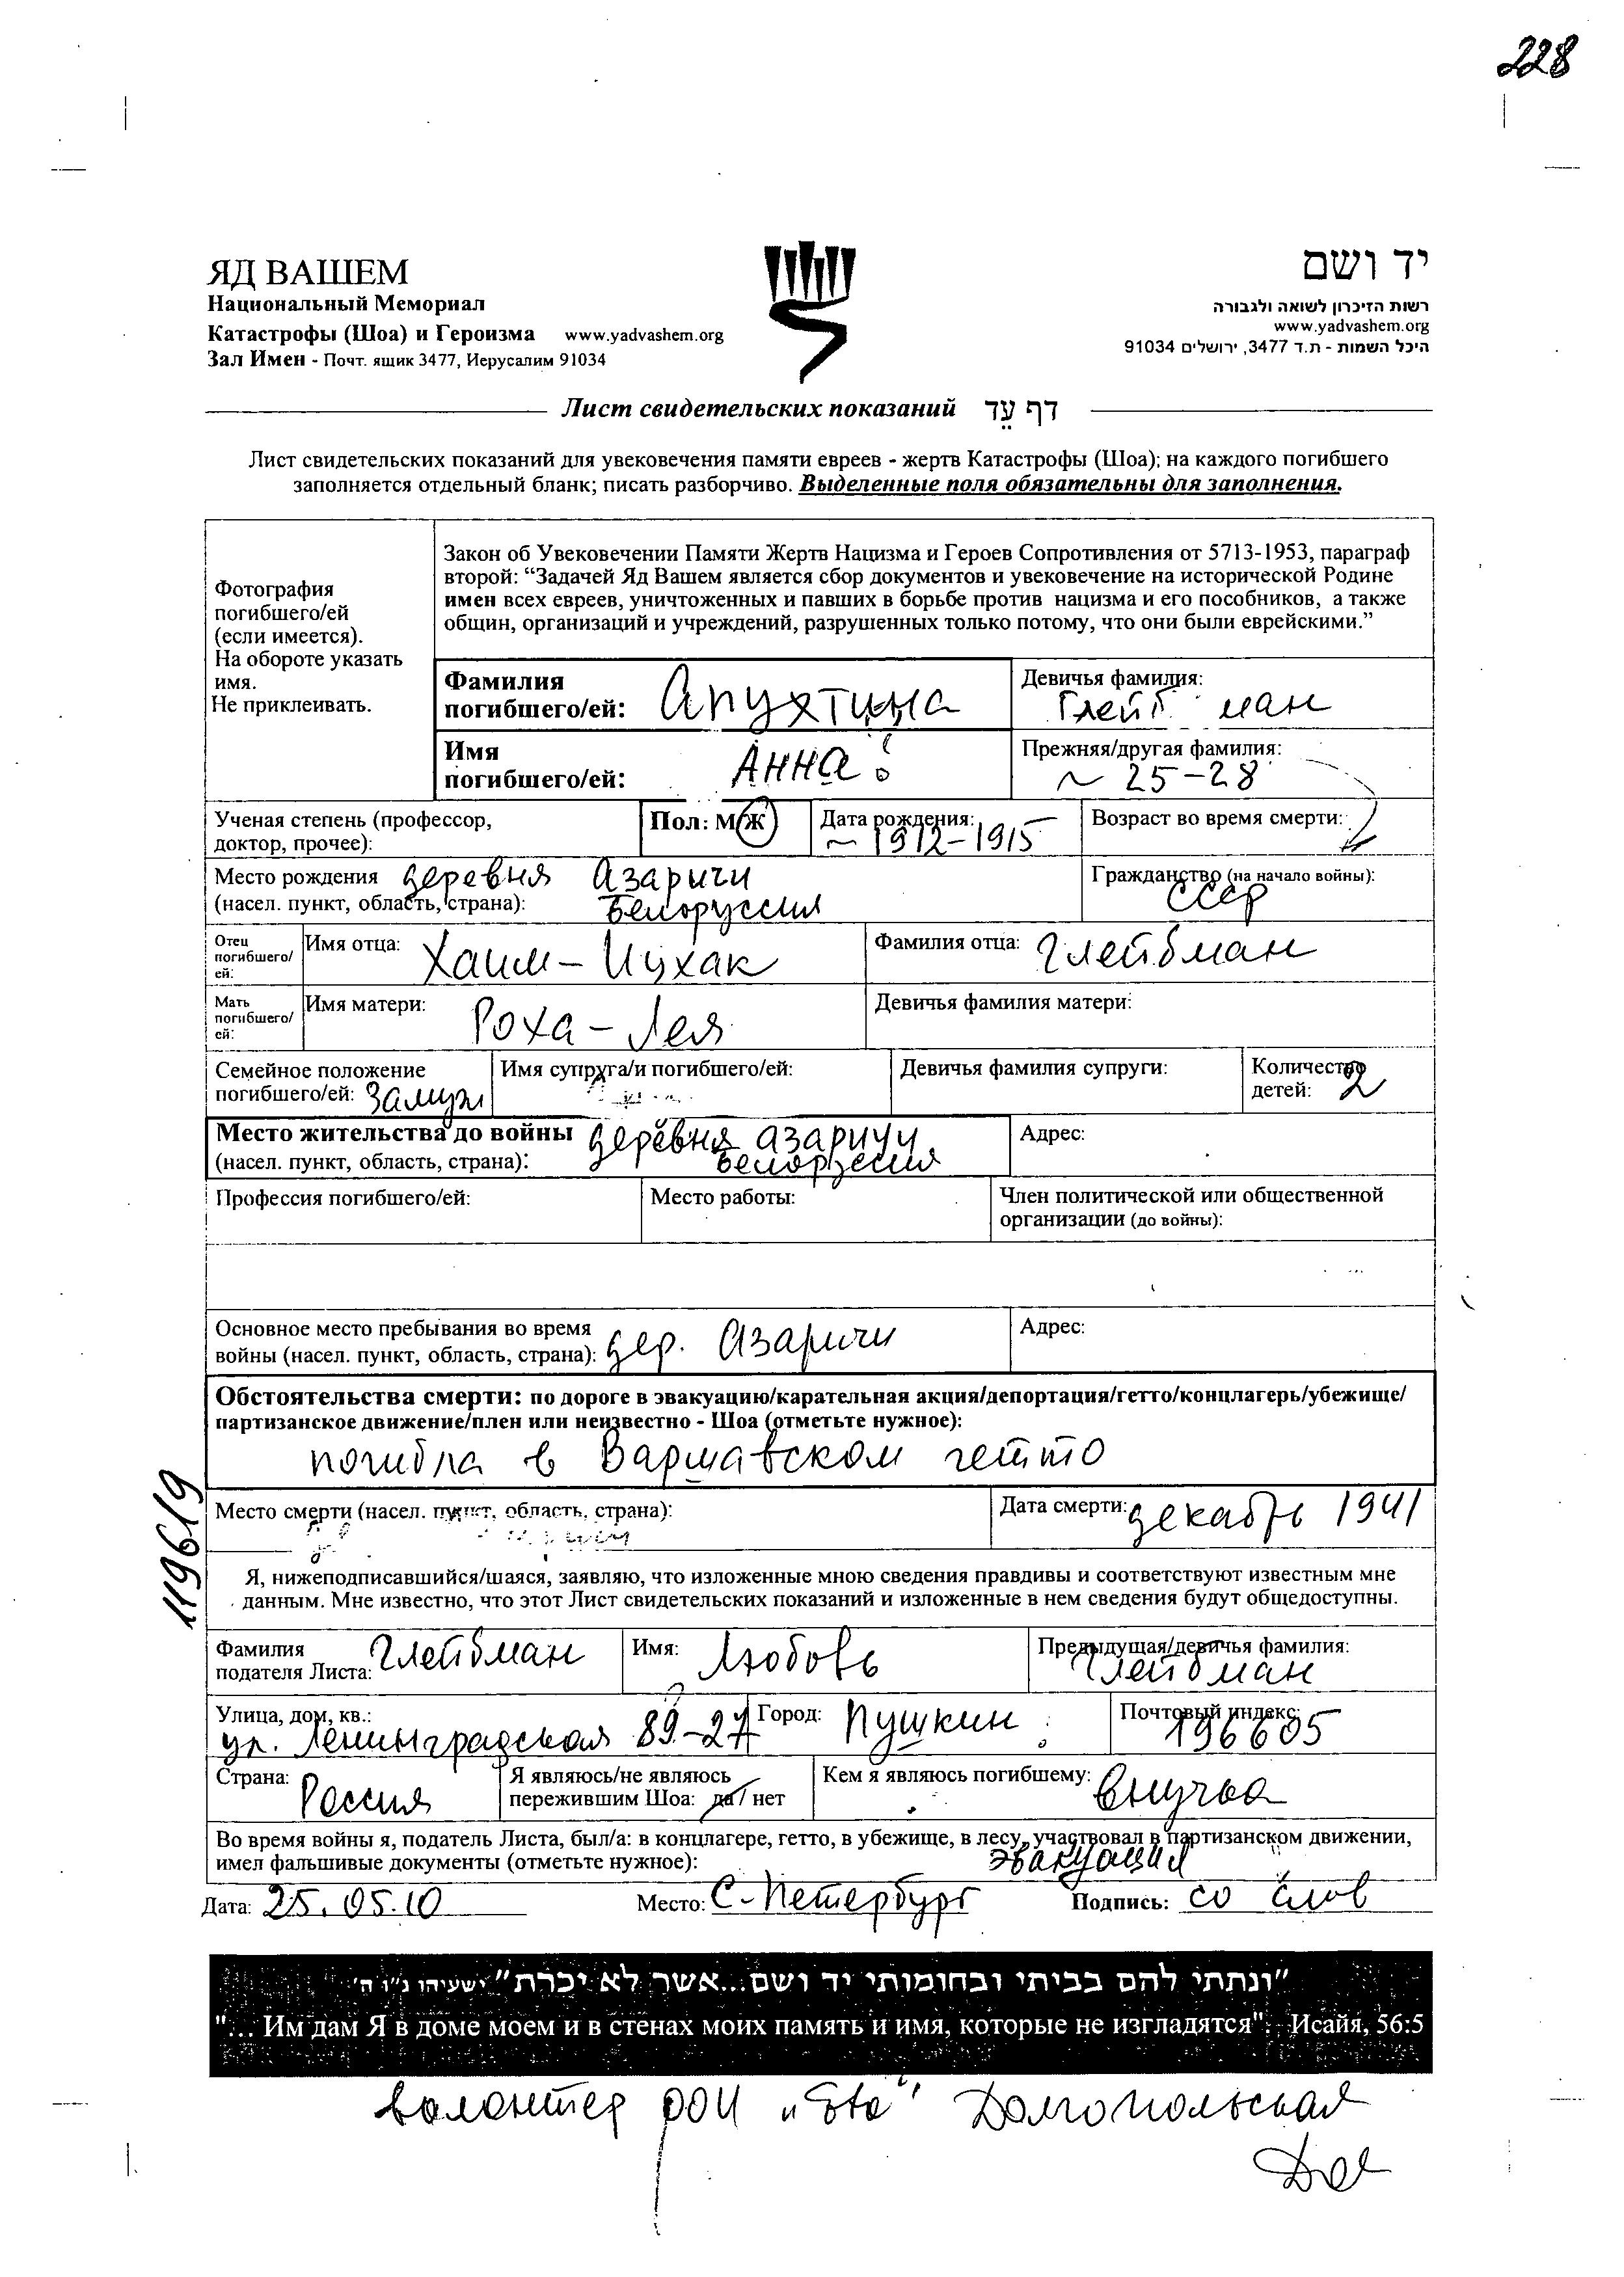 228
ЯД ВАШЕМ
Национальный Мемориал
Катастрофы (Шоа) и Героизма www.yadvashem.org
Зал Имен - Почт. ящик 3477, Иерусалим 91034
יד ושם
רשות הזיכרון לשואה ולגבורה
www.yadvashem.org
היכל השמות - ת.ד 3477, ירושלים 91034
Лист свидетельских показаний דף עֵד
Лист свидетельских показаний для увековечения памяти евреев - жертв Катастрофы (Шоа); на каждого погибшего
заполняется отдельный бланк; писать разборчиво. Выделенные поля обязательны для заполнения.
Фотография
погибшего/ей
(если имеется).
На обороте указать
имя.
Не приклеивать.
Закон об Увековечении Памяти Жертв Нацизма и Героев Сопротивления от 5713-1953, параграф
второй: “Задачей Яд Вашем является сбор документов и увековечение на исторической Родине
имен всех евреев, уничтоженных и павших в борьбе против нацизма и его пособников, а также
общин, организаций и учреждений, разрушенных только потому, что они были еврейскими.”
Фамилия
погибшего/ей: Апухтина
Девичья фамилия:
Глейб ман
Имя
погибшего/ей: Анна
Прежняя/другая фамилия:
~ 25-28
Ученая степень (профессор,
доктор, прочее):
Пол: М/Ж
Дата рождения:
~ 1912-1915
Возраст во время смерти:
Место рождения деревня Азаричи
(насел. пункт, область, страна): Белоруссия
Гражданство (на начало войны):
СССР
Отец
погибшего/
ей:
Имя отца: Хаим-Ицхак
Фамилия отца: Глейбман
Мать
погибшего/
ей:
Имя матери: Роха-Лея
Девичья фамилия матери:
Семейное положение
погибшего/ей: Замужем
Имя супруга/и погибшего/ей:
Девичья фамилия супруги:
Количество
детей: 2
Место жительства до войны деревня Азаричи
(насел. пункт, область, страна): Белоруссия
Адрес:
Профессия погибшего/ей:
Место работы:
Член политической или общественной
организации (до войны):
Основное место пребывания во время
войны (насел. пункт, область, страна): дер. Азаричи
Адрес:
Обстоятельства смерти: по дороге в эвакуацию/карательная акция/депортация/гетто/концлагерь/убежище/
партизанское движение/плен или неизвестно - Шоа (отметьте нужное):
погибла в Варшавском гетто
Место смерти (насел. пункт, область, страна):
Дата смерти: декабрь 1941
119619
Я, нижеподписавшийся/шаяся, заявляю, что изложенные мною сведения правдивы и соответствуют известным мне
данным. Мне известно, что этот Лист свидетельских показаний и изложенные в нем сведения будут общедоступны.
Фамилия
подателя Листа: Глейбман
Имя: Любовь
Предыдущая/девичья фамилия:
Глейбман
Улица, дом, кв.:
ул. Ленинградская 89-27
Город: Пушкин
Почтовый индекс:
196605
Страна: Россия
Я являюсь/не являюсь
пережившим Шоа: да / нет
Кем я являюсь погибшему: внучка
Во время войны я, податель Листа, был/а: в концлагере, гетто, в убежище, в лесу, участвовал в партизанском движении,
имел фальшивые документы (отметьте нужное): эвакуация
Дата: 25.05.10 Место: С-Петербург Подпись: со слов
"ונתתי להם בביתי ובחומותי יד ושם...אשר לא יכרת" ישעיהו נ"ו ה'
"... Им дам Я в доме моем и в стенах моих память и имя, которые не изгладятся". Исайя, 56:5
волонтер РОО „Ева" Долгопольская